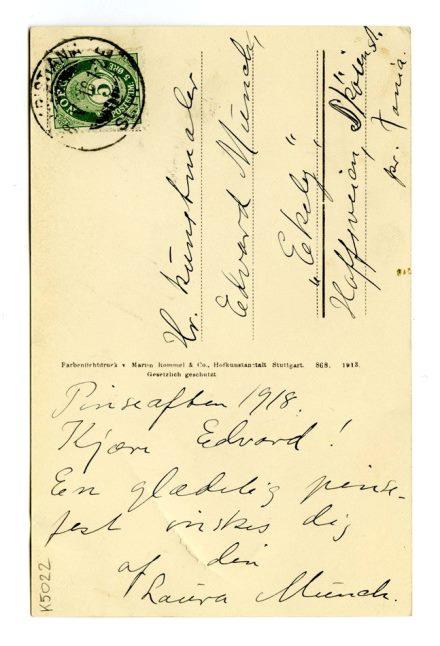 Hr. kunstmaler
Edvard Munch,
"Ekely"
Hoffsveien, Skøienst.
pr. X ania.
Farbenlichtdruck v Marten Rommel & Co., Hofkunstanstalt Stuttgart. 868. 1913.
Gesetzlich geschützt
Pinseaften 1918.
Kjære Edvard!
En glædelig pinse-
fest ønskes dig
af din
Laura Munch.
K5022